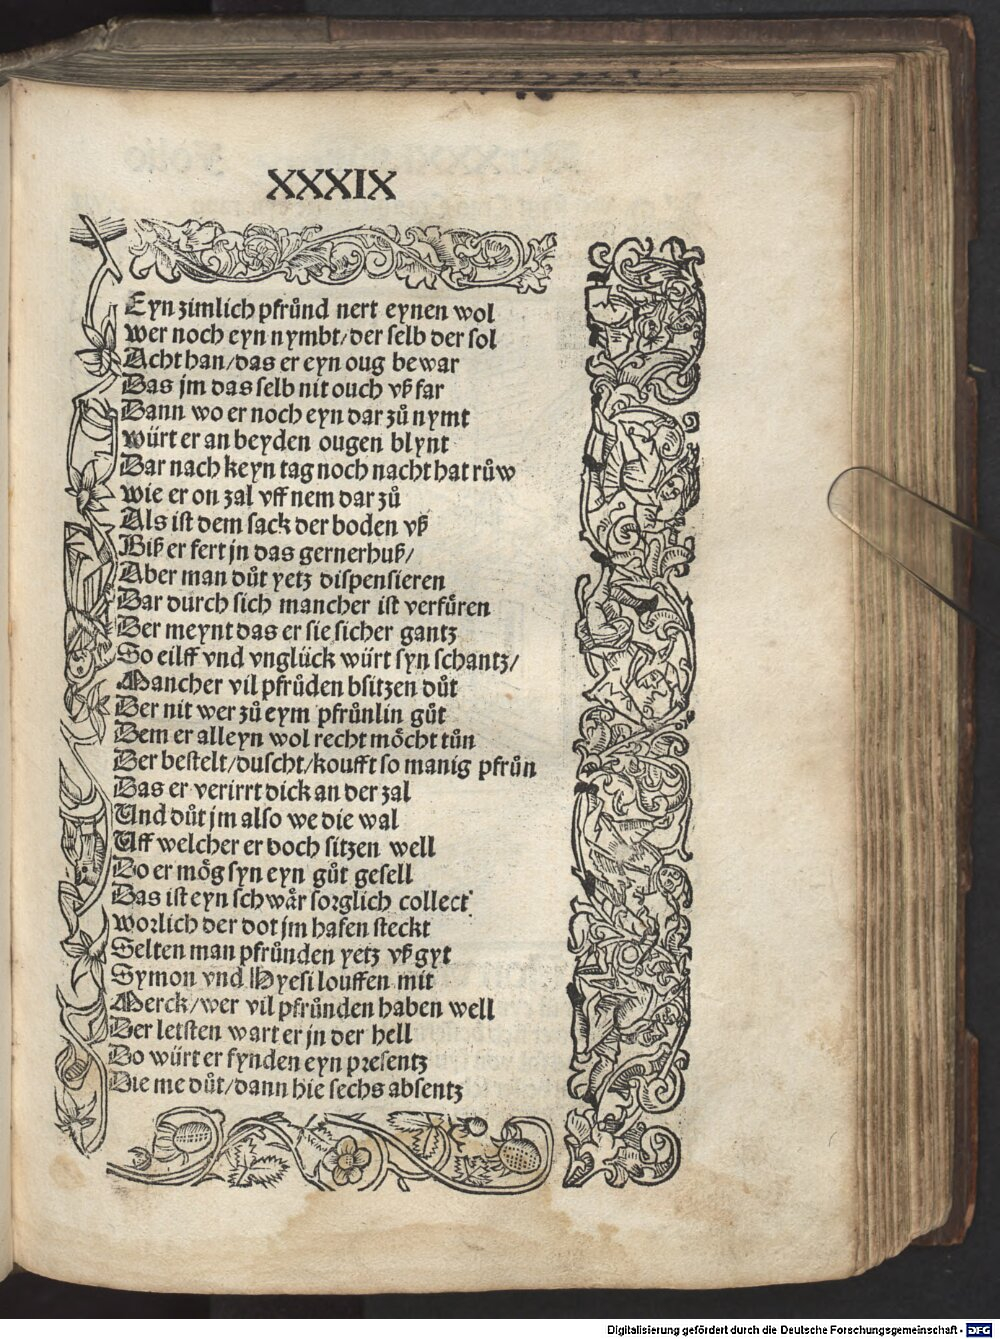 XXXIX
Eyn zimlich pfrůnd nert eynen wol
wer noch eyn nymbt/der selb der sol
Acht han/das er eyn oug bewar
Das jm das selb nit ouch vß far
Dann wo er noch eyn dar zů nymt
würt er an beyden ougen blynt
Dar nach keyn tag noch nacht hat růw
wie er on zal vff nem dar zů
Als ist dem sack der boden vß
Biß er fert jn das gernerhuß/
Aber man důt yetz dispensieren
Dar durch sich mancher ist verfüren
Der meynt das er sie sicher gantz
So eilff vnd vnglück würt syn schantz/
Mancher vil pfrůden bsitzen důt
Der nit wer zů eym pfrůnlin gůt
Dem er alleyn wol recht möcht tůn
Der bestelt/duscht/koufft so manig pfrůn
Das er verirrt dick an der zal
Und důt jm also we die wal
Uff welcher er doch sitzen well
Do er mög syn eyn gůt gesell
Das ist eyn schwår sorglich collect
worlich der dot jm hafen steckt
Selten man pfrůnden yetz vß gyt
Symon vnd Hyesi louffen mit
Merck/wer vil pfrůnden haben well
Der letsten wart er jn der hell
Do würt er fynden eyn presentz
Die me důt/dann hie sechs absentz
Digitalisierung gefördert durch die Deutsche Forschungsgemeinschaft - DFG